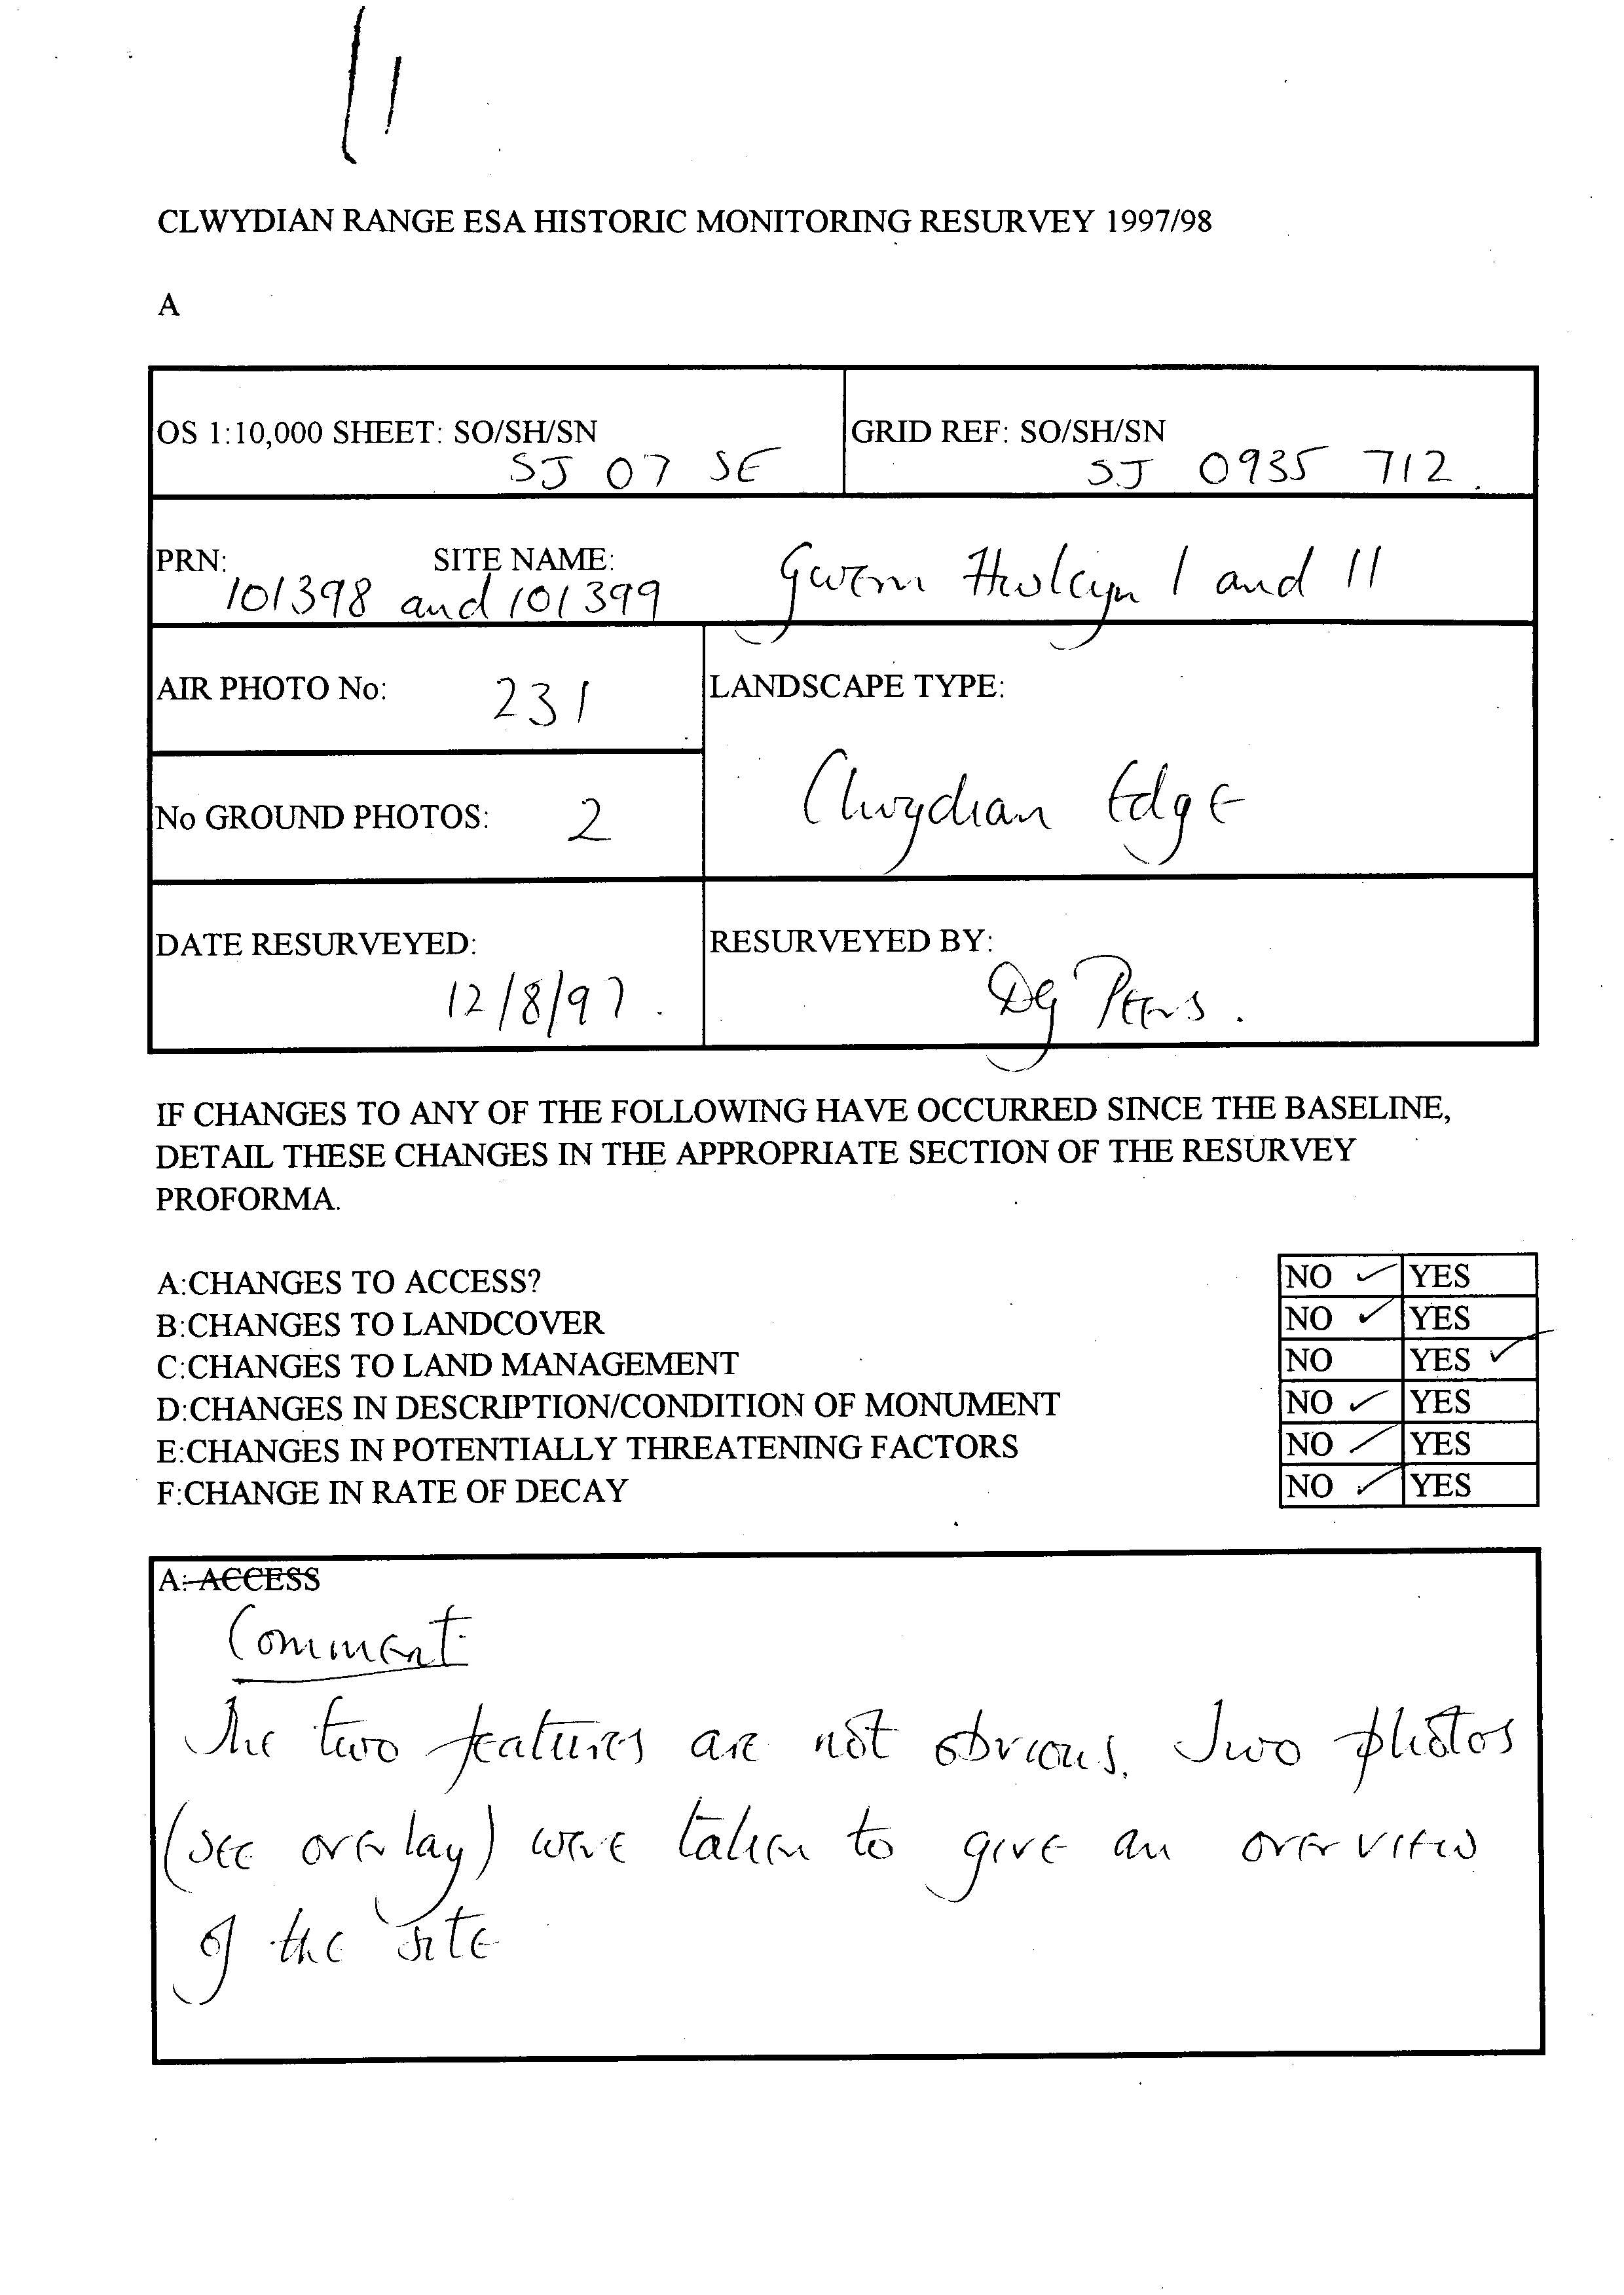 11
CLWYDIAN RANGE ESA HISTORIC MONITORING RESURVEY 1997/98
A
OS 1:10,000 SHEET: SO/SH/SN
SJ 07 SE
GRID REF: SO/SH/SN
SJ 0935 712.
PRN: SITE NAME:
101398 and 101399 Gwern I and II
AIR PHOTO No: 231
LANDSCAPE TYPE:
Clwydian Edge
No GROUND PHOTOS: 2
DATE RESURVEYED:
12/8/97.
RESURVEYED BY:
DG
IF CHANGES TO ANY OF THE FOLLOWING HAVE OCCURRED SINCE THE BASELINE,
DETAIL THESE CHANGES IN THE APPROPRIATE SECTION OF THE RESURVEY
PROFORMA.
A:CHANGES TO ACCESS? NO ✓ YES
B:CHANGES TO LANDCOVER NO ✓ YES
C:CHANGES TO LAND MANAGEMENT NO YES ✓
D:CHANGES IN DESCRIPTION/CONDITION OF MONUMENT NO ✓ YES
E:CHANGES IN POTENTIALLY THREATENING FACTORS NO ✓ YES
F:CHANGE IN RATE OF DECAY NO ✓ YES
A: ACCESS
Comment
The two features are not obvious. Two photos
(see overlay) were taken to give an overview
of the site